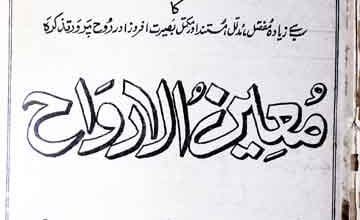 کا
سب سے زیادہ مفصّل، مدلّل، مستند اور مکمّل بصیرت افروز اور روح پرور تذکرہ
مُعِینُ الارواح